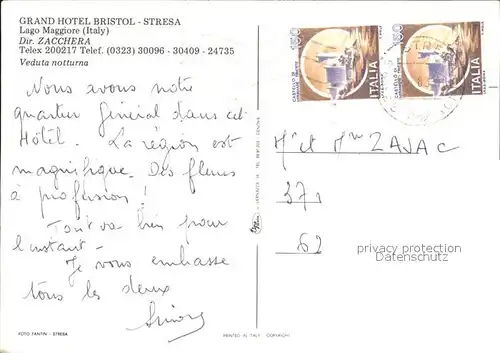 GRAND HOTEL BRISTOL - STRESA
Lago Maggiore (Italy)
Dir. ZACCHERA
Telex 200217 Telef. (0323) 30096 - 30409 - 24735
Veduta notturna
Nous avons notre
quartier général dans cet
Hôtel. La région est
magnifique. Des fleurs
à profusion !
Tout va bien pour
l'instant -
Je vous embrasse
tous les deux
FOTO FANTIN - STRESA
PRINTED IN ITALY COPYRIGHT
150 ITALIA
150 ITALIA
Mr et Mme ZAJAC
371
62
privacy protection
Datenschutz